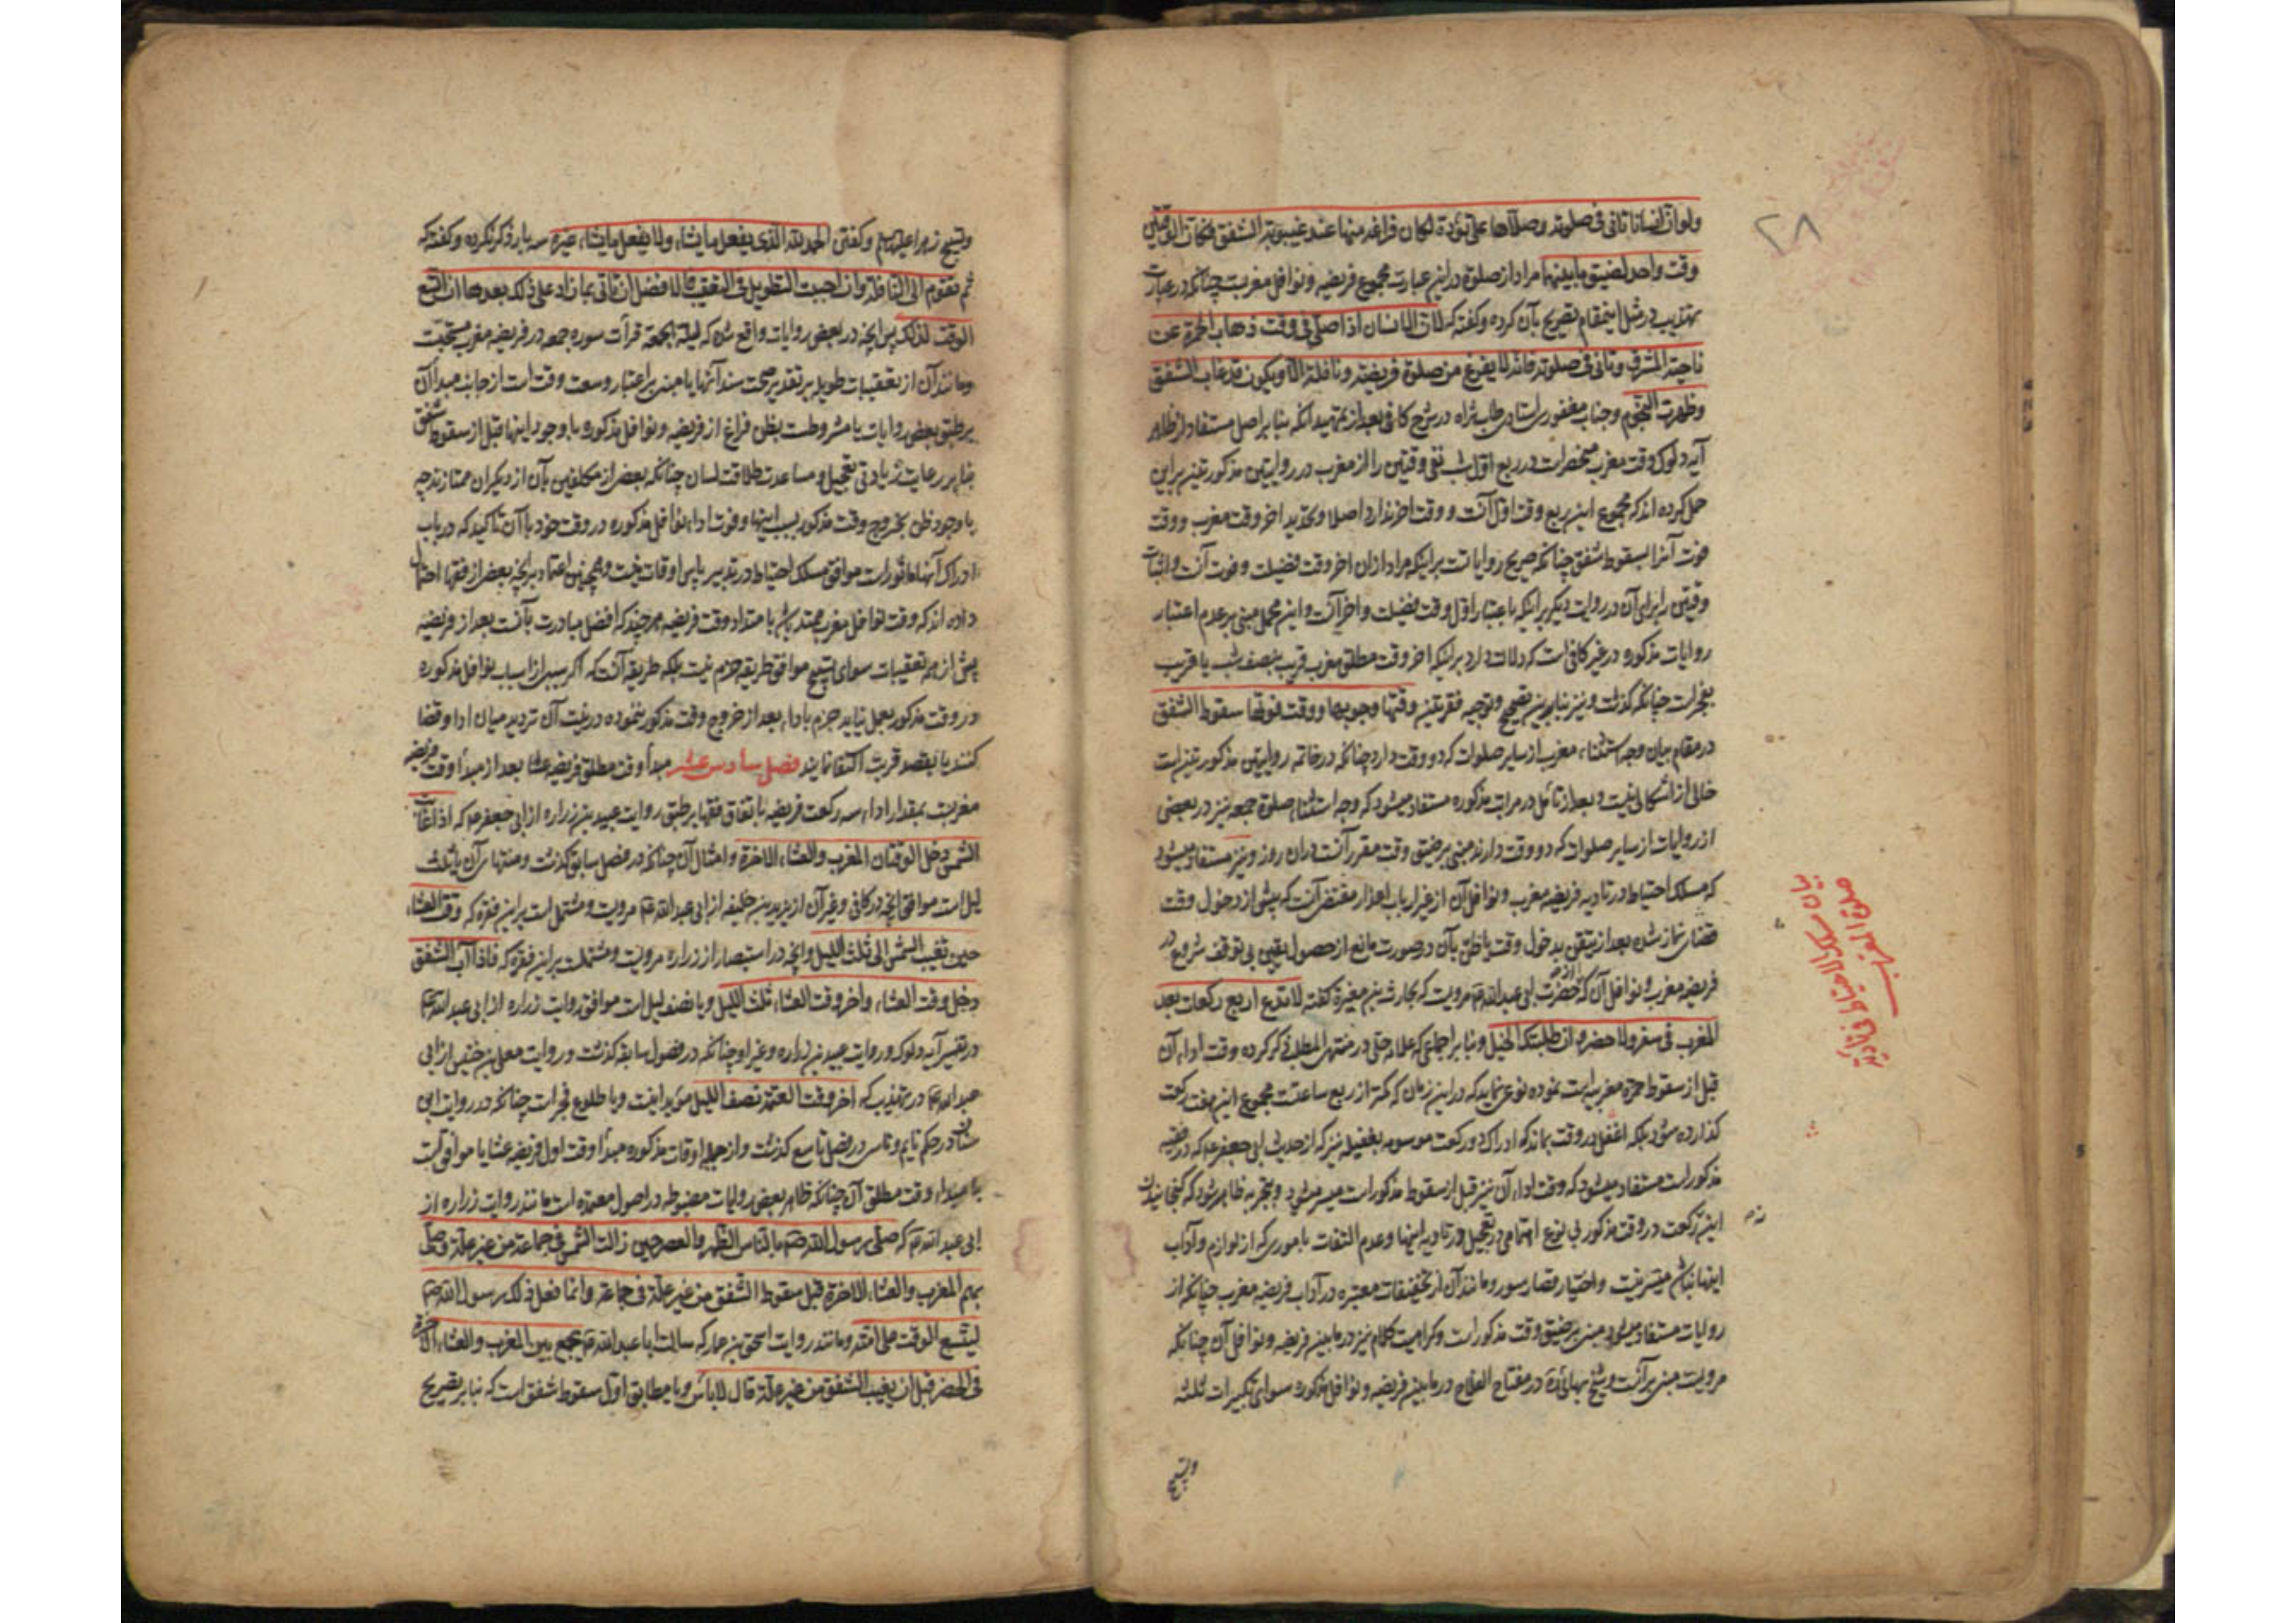 ٢٨
ولو ان انسانا تانی فی صلوته وصلاها علی تؤدة لکان فراغه منها عند غیبوبة الشفق فکان الوقتین
وقت واحد لضیق ما بینهما مراد از صلوة در این عبارت مجموع فریضه و نوافل مغربست چنانکه در عبارت
تهذیب در مثل اینمقام تصریح بآن کرده وکفته که لان الانسان اذا صلی فی وقت ذهاب الحمرة عن
ناحیة المشرق وتانی فی صلوته فانه لا یفرغ من صلوة فریضته ونافلته الا ویکون قد غاب الشفق
وظهرت النجوم وجناب مغفوری استادی طاب ثراه در شرح کافی بعد از تمهید انکه بنا بر اصل مستفاد از ظاهر
آیه دلوک وقت مغرب منحصرات در ربع اول شب نفی وقتین را از مغرب در روایتین مذکورتین بر این
حمل کرده اند که مجموع این ربع وقت اول آنست و وقت اخر ندارد اصلا وتحدید اخر وقت مغرب و وقت
فوت آنرا بسقوط شفق چنانکه صریح روایاتست بر اینکه مراد ازان اخر وقت فضیلت وفوت آنست واثبات
وقتین را برای آن در روایت دیکر بر اینکه باعتبار اول وقت فضیلت واخر آنست واین محمل مبنی بر عدم اعتبار
روایات مذکوره در غیر کافی است که دلالت دارد بر اینکه اخر وقت مطلق مغرب قریب بنصف شب یا قریب
بفجرست چنانکه کذشت ونیز بنا براین تصحیح وتوجیه فقرتین وقتها وجوبها و وقت فوتها سقوط الشفق
در مقام بیان وجه استثناء مغرب از سایر صلوات که دو وقت دارد چنانکه در خاتمه روایتین مذکورتین است
خالی از اشکالی نیست و بعد از تامل در مراتب مذکوره مستفاد میشود که وجه استثناء صلوة جمعه نیز در بعضی
از روایات از سایر صلوات که دو وقت دارند مبنی بر ضیق وقت مقرر آنست دران روز ونیز مستفاد میشود
که مسلک احتیاط در تادیه فریضه مغرب ونوافل آن از غیر ارباب اعذار مقتضی آنست که پیش از دخول وقت
فریضه مغرب ونوافل آن که از حضرت ابی عبدالله ع مرویست که بحارث بن مغیرة کفته لا تدع اربع رکعات بعد
المغرب فی سفر ولا حضر وان طلبتک الخیل وبنا بر اجماعی که علامه حلی در منتهی المطلب ذکر کرده وقت اداء آن
قبل از سقوط حمره مغربیه است نموده نوعی نماید که در این زمان که کمتر از ربع ساعتست مجموع این هفت رکعت
مذکورات مستفاد میشود که وقت اداء آن نیز قبل از سقوط مذکورات میسر میشود وبتجربه ظاهر میشود که کنجانیدن
این نه رکعت در وقت مذکور بی نوع اهتمامی در تعجیل در تادیه اینها وعدم التفات باموری که از لوازم وآداب
اینها نباشد میسر نیست واختیار قصار سور ومانند آن از تخفیفات معتبره در آداب فریضه مغرب چنانکه از
روایات مستفاد میشود مبنی بر ضیق وقت مذکور است وکراهیت کلام نیز در مابین فریضه ونوافل آن چنانکه
مرویست مبنی بر آنست وشیخ بهائی ره در مفتاح الفلاح در مابین فریضه ونوافل مذکوره سوای تکبیرات ثلثه
وتسبیح
بیان مسلک الاحتیاط فی تادیة
صلوة المغرب
وتسبیح زهرا علیها السلام وکفتن الحمد لله الذی یفعل ما یشاء ولا یفعل ما یشاء غیره سه بار ذکر نکرده وکفته که
ثم تقوم الی النافلة وان احببت التطویل فی التعقیب فالافضل ان تاتی بما زاد علی ذلک بعدها ان اتسع
الوقت لذلک پس انچه در بعضی روایات واقع شده که لیلة الجمعة قرأت سوره جمعه در فریضه مغرب مستحبست
ومانند آن از تعقیبات طویل بر تقدیر صحت سند آنها یا مبنی بر اعتبار وسعت وقت است از جانب مبدا آن
بر طبق بعضی روایات یا مشروطست بظن فراغ از فریضه ونوافل مذکوره با وجود اینها قبل از سقوط شفق
بنا بر رعایت زیادتی تعجیل ومساعدت طلاقت لسان چنانکه بعضی از مکلفین بآن از دیکران ممتازند چه
با وجود ظن بخروج وقت مذکور بسبب اینها وفوت اداء نوافل مذکوره در وقت خود با آن تاکید که در باب
داده اند که وقت نوافل مغرب ممتد باشد بامتداد وقت فریضه هرچند که افضل مبادرت بآنست بعد از فریضه
پیش از همه تعقیبات سوای تسبیح موافق طریقه حزم نیست بلکه طریقه آنست که اکر بسببی از اسباب نوافل مذکوره
در وقت مذکور بعمل نیاید جزم باداء بعد از خروج وقت مذکور ننموده در نیت آن تردید میان ادا وقضا
کنند یا بقصد قربت اکتفا نمایند فصل سادس عشر مبدأ وقت مطلق فریضه عشا بعد از مبدأ وقت فریضه
مغربست بمقدار اداء سه رکعت فریضه باتفاق فقها بر طبق روایت عبید بن زراره از ابی جعفر ع که اذا غابت
الشمس دخل الوقتان المغرب والعشاء الاخرة وامثال آن چنانکه در فصل سابق کذشت ومنتهای آن یا ثلث
لیل است موافق انچه در کافی وغیر آن از یزید بن خلیفه از ابی عبدالله ع مرویست ومشتمل است بر این فقره که وقت العشاء
حین تغیب الشمس الی ثلث اللیل وانچه در استبصار از زراره مرویست ومشتملست بر این فقره که فاذا آب الشفق
دخل وقت العشاء واخر وقت العشاء ثلث اللیل ویا نصف لیل است موافق روایت زراره از ابی عبدالله ع
در تفسیر آیه دلوک وروایت عبید بن زراره وغیر او چنانکه در فصول سابقه کذشت وروایت معلی بن خنیس از ابی
عبدالله ع در تهذیب که اخر وقت العتمة نصف اللیل مؤید اینست ویا طلوع فجر است چنانکه در روایت ابن
سنان در حکم نایم وناسی در فصل تاسع کذشت واز جمله اوقات مذکوره مبدأ وقت اول فریضه عشا یا موافق است
با مبداء وقت مطلق آن چنانکه ظاهر بعضی روایات مضبوطه در اصول معتمده است مانند روایت زراره از
ابی عبدالله ع که صلی رسول الله ص بالناس الظهر والعصر حین زالت الشمس فی جماعة من غیر علة وصلی
بهم المغرب والعشاء الاخرة قبل سقوط الشفق من غیر علة فی جماعة وانما فعل ذلک رسول الله ص
لیتسع الوقت علی امته ومانند روایت اسحق بن عمار که سالت ابا عبدالله ع یجمع بین المغرب والعشاء الاخرة
فی الحضر قبل ان یغیب الشفق من غیر علة قال لا باس ویا مطابق اول سقوط شفق است که بنا بر تصریح